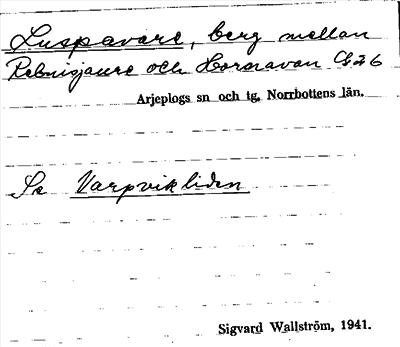 Luspavare, berg mellan
Rebnisjaure och Hornavan C 6
Arjeplogs sn och tg, Norrbottens län.
Se Varpvikliden
Sigvard Wallström, 1941.